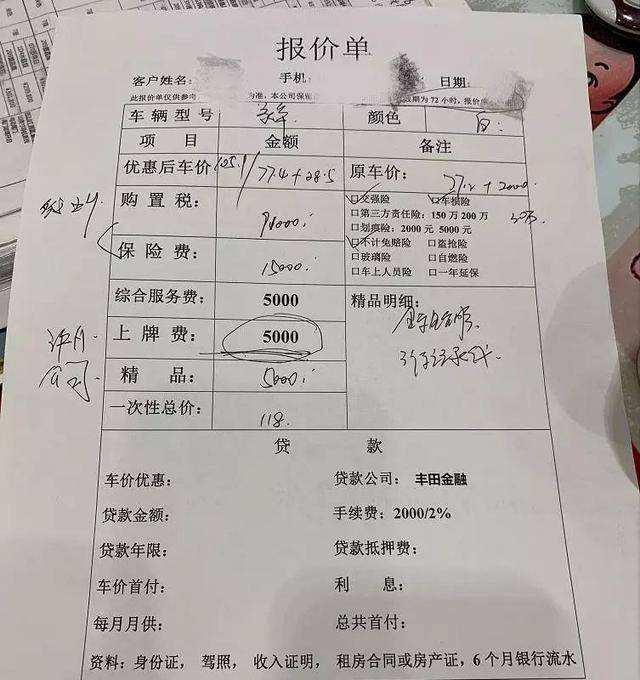 报价单
客户姓名: 手机: 日期:
此报价单仅供参考 为准，本公司保留 期为 72 小时，报价
车辆型号 颜色 白
项 目 金额 备注
优惠后车价 105 / 77.4 + 28.5 原车价:
购 置 税:
保 险 费: 15000
☑交强险 ☐车损险
☐第三方责任险: 150 万 200 万
☐划痕险: 2000 元 5000 元
☑不计免赔险 ☐盗抢险
☐玻璃险 ☐自燃险
☐车上人员险 ☐一年延保
综合服务费: 5000 精品明细:
上 牌 费: 5000
精 品: 5000
一次性总价: 118.
贷 款
车价优惠: 贷款公司: 丰田金融
贷款金额: 手续费: 2000/2%
贷款年限: 贷款抵押费:
车价首付: 利 息:
每月月供: 总共首付:
资料: 身份证， 驾照， 收入证明， 租房合同或房产证，6 个月银行流水